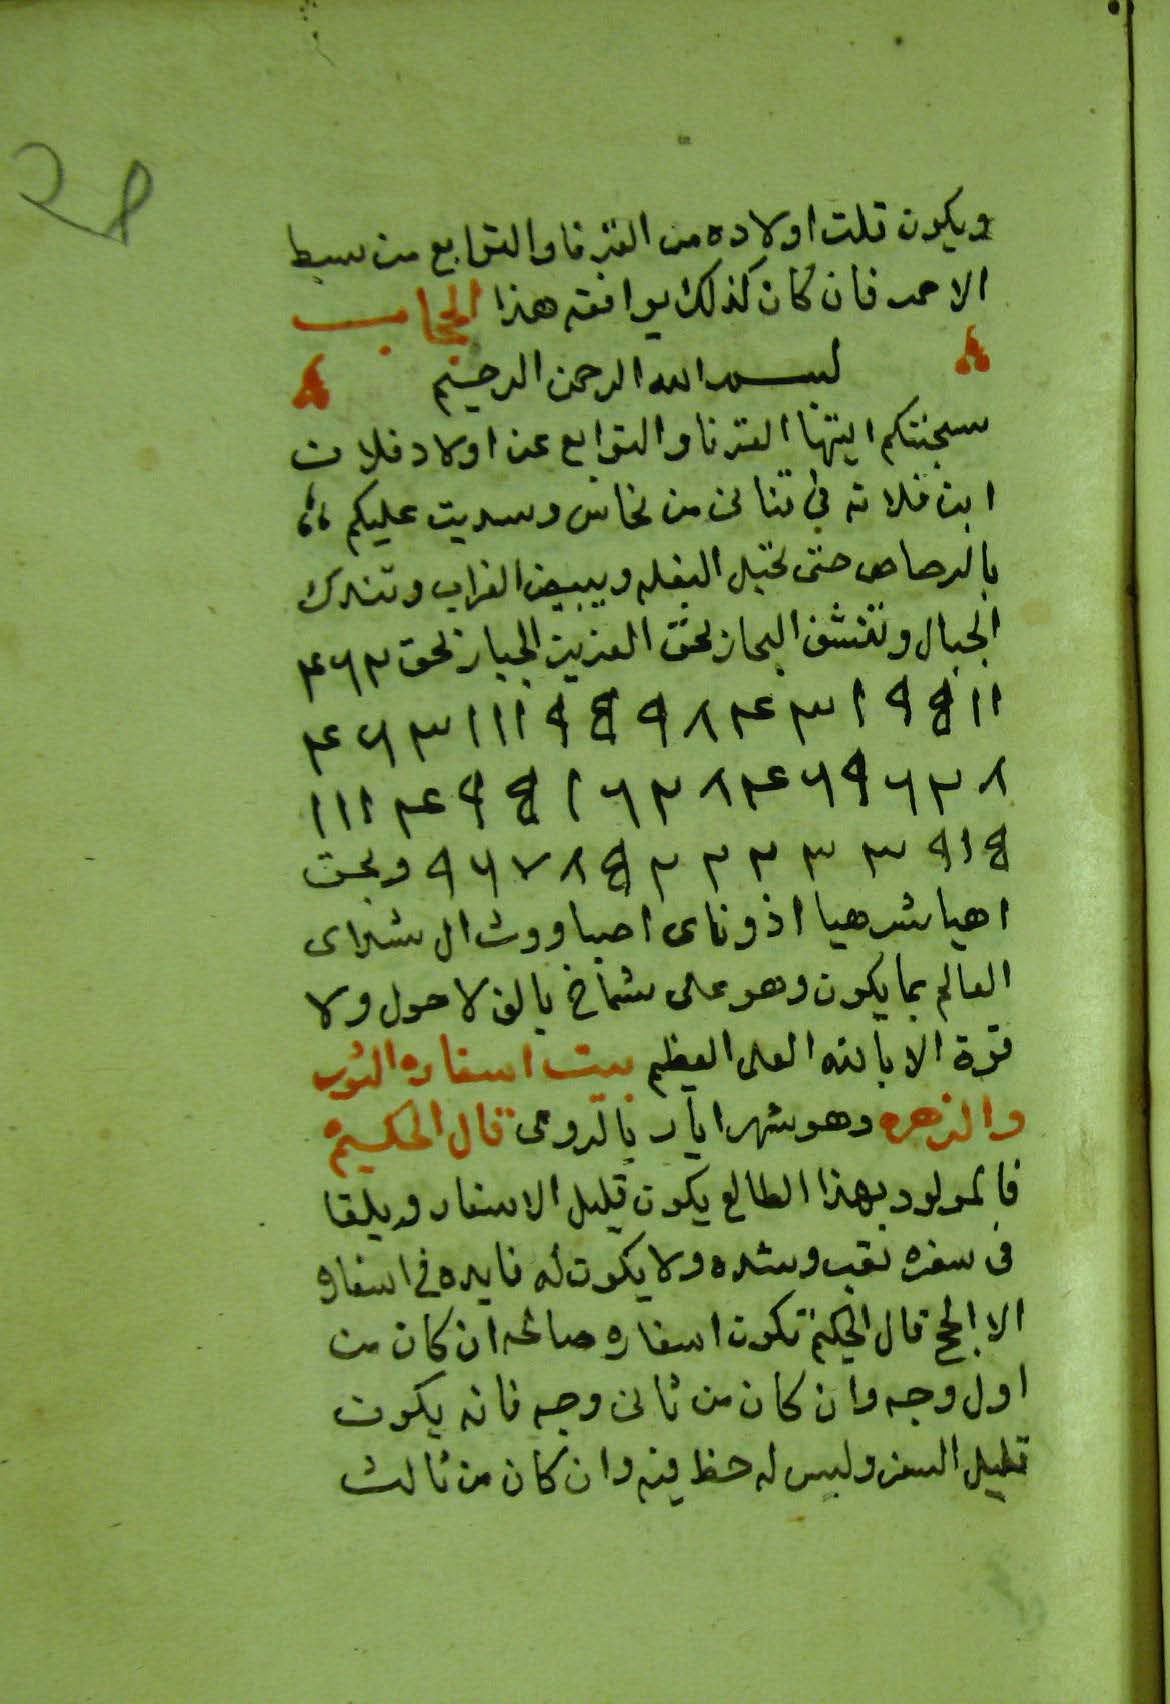 ٢٨
ويكون تلت اولاده من القرنا والتوابع من سبط
الاحمر فان كان كذلك يوافقه هذا الحجاب
بسم الله الرحمن الرحيم
سجنتكم ايتها القرنا والتوابع عن اولاد فلان
ابن فلانه في تنانى من نحاس وسديت عليكم
بالرصاص حتى تحبل البغله ويبيض الغراب وتندك
الجبال وتنشف البحار بحق العزيز الجبار بحق
وبحق
اهيا شرهيا اذوناى اصباووث ال شداى
العالم بما يكون وهو على شماخ بالف لا حول ولا
قوة الا بالله العلى العظيم بيت اسفاره الثور
والزهره وهو شهر ايار بالرومى قال الحكيم
فالمولود بهذا الطالع يكون قليل الاسفار ويلقا
فى سفره تعب وشده ولا يكون له فايده في اسفاره
الا الحج قال الحكيم تكون اسفاره صالحه ان كان من
اول وجه وان كان من ثانى وجه فانه يكون
قليل السفر وليس له حظ فيه وان كان من ثالث